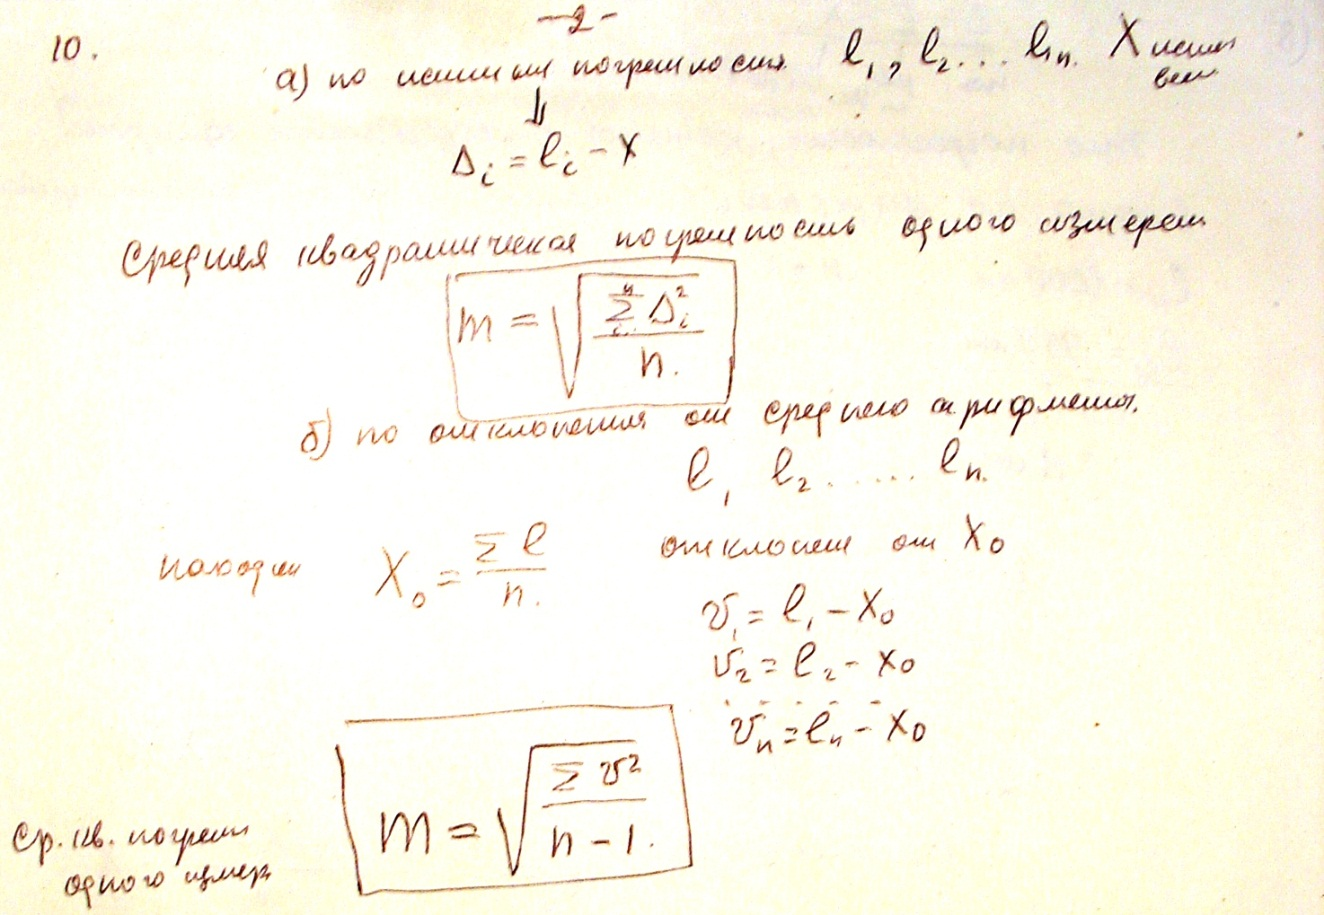 -2-
10.
а) по истинным погрешностям l₁, l₂ ... lₙ. X истин
вел
⇓
Δᵢ = lᵢ - X
Средняя квадратическая погрешность одного измерен
m = √(∑ᵢⁿ Δᵢ² / n.)
б) по отклонениям от среднего арифметич.
l₁ l₂ ...... lₙ.
находим X₀ = ∑ l / n. отклонен от X₀
v₁ = l₁ - X₀
v₂ = l₂ - X₀
. . . . .
vₙ = lₙ - X₀
m = √(∑ v² / n - 1.)
Ср. кв. погрешн
одного измер